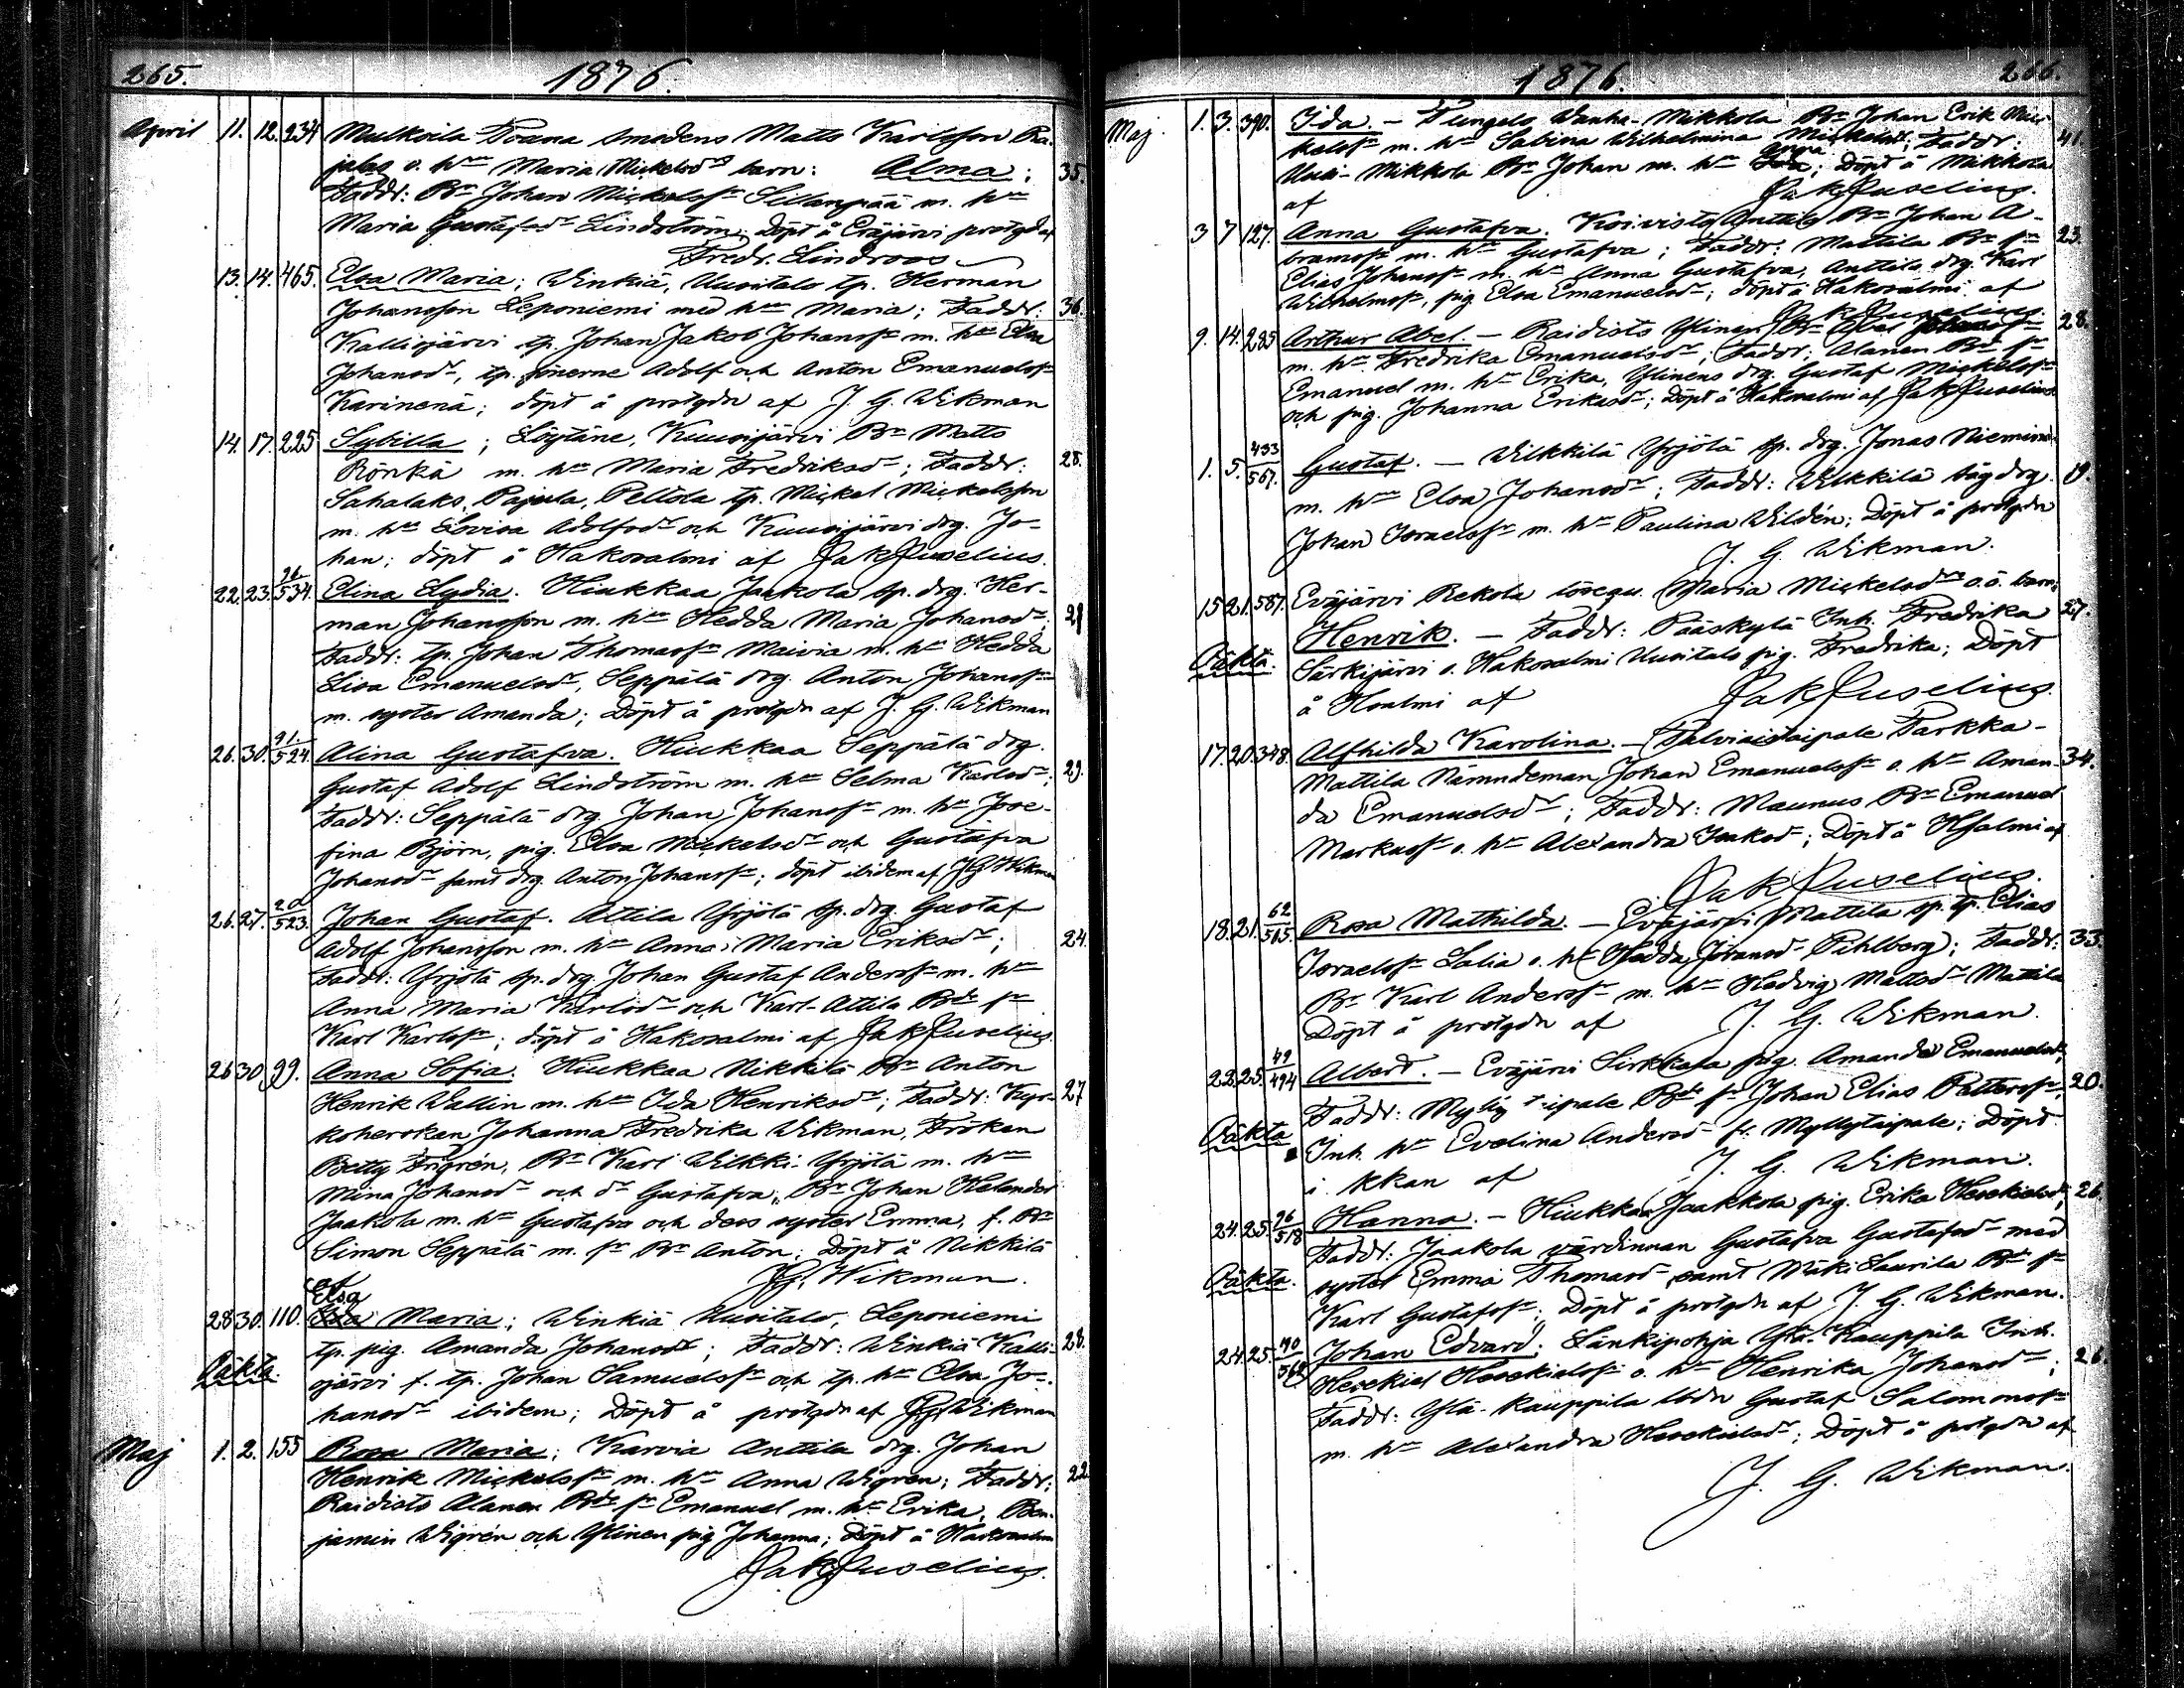 265. 1876.
April 11. 12. 234 Mulkoila Toana Smedens Matts Karlsson Ra-
jalas o. hn Maria Mickelsdr barn: Alma; 35.
Faddr: Bn Johan Mickelssn Sillanpää m. hn
Maria Gustafsdr Lindström; Döpt å Eväjärvi prestgd af
Fredr. Lindroos
13. 14. 465. Elsa Maria; Winkiä, Uusitalo tp. Herman
Johansson Leponiemi med hn Maria; Faddr: 36.
Kalliojärvi tp. Johan Jakob Johanssn m. hn Elsa
Johansdr, tp. sönerne Adolf och Anton Emanuelssr
Karinenä; döpt å prstgdn af J. G. Wikman
14. 17. 225. Sybilla; Löytäne, Kuusijärvi Bn Matts
Rönkä m. hn Maria Fredriksdr; Faddr: 28.
Sahalaks, Pajula, Pellola tp. Mickel Mickelsson
m. hn Lovisa Adolfsdr och Kuusijärvi drg. Jo-
han; döpt å Hakosalmi af Jak Juselius.
22. 23. 96/534. Elina Lydia. Hiukkaa Jaakola sp. drg. Her-
man Johansson m. hn Hedda Maria Johansdr; 28
Faddr: tp. Johan Thomassn Maivia m. hn Hedda
Lisa Emanuelsdr, Seppälä drg. Anton Johanssn
m. syster Amanda; Döpt å prstgdn af J. G. Wikman
26. 30. 91./524. Alina Gustafva. Hiukkaa Seppälä drg.
Gustaf Adolf Lindström m. hn Selma Karlsdr; 29.
Faddr: Seppälä drg. Johan Johanssn m. hn Jose-
fina Björn, pig. Elsa Mickelsdr och Gustafva
Johansdr samt drg. Anton Johanssn; döpt ibidem af J G Wikman
26. 27. 20/523. Johan Gustaf. Attila Yrjölä sp. drg. Gustaf
Adolf Johansson m. hn Anna Maria Eriksdr; 24.
Faddr: Yrjölä sp. drg Johan Gustaf Anderssn m. hn
Anna Maria Karlsdr och Karl-Attila Bds sn
Karl Karlssn; döpt å Hakosalmi af Jak Juselius.
26 30 99. Anna Sofia. Hiukkaa Nikkilä Bn Anton
Henrik Wallin m. hn Ida Henriksdr; Faddr: Kyr- 27
koherskan Johanna Fredrika Wikman, Fröken
Betty Frigrén, Bn Karl Wilkki-Yrjölä m. hn
Mina Johansdr och dr Gustafva, Bn Johan Helander
Jaakola m. hn Gustafva och dess syster Emma, f. Bn
Simon Seppälä m. sn Bn Anton; Döpt å Nikkilä
J G Wikman.
Elsa
28 30. 110. Maria; Winkiä Uusitalo, Leponiemi
tp. pig. Amanda Johansdr; Faddr: Winkiä Kalli- 28.
Oäkta. ojärvi f. tp. Johan Samuelssn och tp. hn Elsa Jo-
hansdr ibidem; Döpt å prstgdn af J G Wikman
Maj 1. 2. 155 Rosa Maria; Karvia Anttila drg. Johan
Henrik Mickelssn m. hn Anna Wigren; Faddr: 22
Raidisto Alanen Bds sn Emanuel m. hn Erika, Ben-
jamin Wigrén och Ylinen pig Johanna; Döpt å Hakosalmi
Jak Juselius.
1876. 266.
Maj. 1. 3. 390. Ida. - Pungelo Wanha-Mikkola Bn Johan Erik Mic-
kelssn m. hn Sabina Wilhelmina Mickelsdr; Faddr: 41
Uusi-Mikkola Bn Johan m. hn Anna; Döpt å Mikkola
af Jak Juselius.
3 7 127. Anna Gustafva. Koivisto Anttila Bn Johan A-
bramssn m. hn Gustafva; Faddr: Mattila Bn sn 23.
Elias Johanssn m. hn Anna Gustafva, Anttila drg. Karl
Wilhelmssn, pig Elsa Emanuelsdr; döpt å Hakosalmi af
Jak Juselius.
9. 14. 285 Arthur Abel - Raidisto Ylinen Bn Abel Johanssn 28.
m. hn Fredrika Emanuelsdr; Faddr: Alanen Bds sn
Emanuel m. hn Erika, Ylinens drg. Gustaf Mickelssn
och pig. Johanna Eriksdr; Döpt å Hakosalmi af Jak Juselius
1. 5. 433/567. Gustaf. - Wilkkilä Yrjölä sp. drg. Jonas Nieminen
m. hn Elsa Johansdr; Faddr: Wilkkilä såg drg. 19.
Johan Israelssn m. hn Paulina Wildén; Döpt å prstgdn
J. G. Wikman.
15 21. 587. Eväjärvi Rekola lösequ. Maria Mickelsdrs o. ä. barn; 27.
Henrik. - Faddr: Pääskylä Inh. Fredrika
Oäkta. Särkijärvi o. Hakosalmi Uusitalo pig. Fredrika; Döpt
å Hsalmi af Jak Juselius.
17. 20. 348. Alfhilda Karolina. - Talviaistaipale Parkka-
Mattila Nämndeman Johan Emanuelssn o. hn Aman- 34.
da Emanuelsdr; Faddr: Maunus Bn Emanuel
Markussn o. hn Alexandra Isaksdr; Döpt å Hsalmi af
Jak Juselius.
18. 21. 62/515. Rosa Mathilda. - Eväjärvi Mattila sp. tp. Elias
Israelssn Salia o. hn Hedda Johansdr Pihlberg; Faddr: 33.
Bn Karl Anderssn m. hn Hedvig Mattsdr Mattila
Döpt å prstgdn af J. G. Wikman.
22. 25. 49/494 Albert. - Eväjärvi Sirkkala pig. Amanda Emanuelsdr;
Faddr: Bds sn Johan Elias Petterssn, 20.
Oäkta Inh. hn Evelina Andersdr fr. Myllytaipale; Döpt
i kkan af J. G. Wikman.
24. 25. 96/518 Hanna. - Hiukkaa Jaakkola pig. Erika Hesekielsdr; 26.
Faddr: Jaakola värdinnan Gustafva Gustafsdr med
Oäkta. syster Emma Thomasdr samt Mäki Laurila Bds sn
Karl Gustafssn; Döpt å prstgdn af J. G. Wikman.
24. 25. 190/562 Johan Edvard; Länkipohja Ylä-Kauppila Inh.
Hesekiel Hesekielssn o. hn Henrika Johansdr; 26.
Faddr: Ylä-Kauppila lbdn Gustaf Salomonssn
m. hn Alexandra Hesekielsdr; Döpt å prstgdn af
J. G. Wikman.